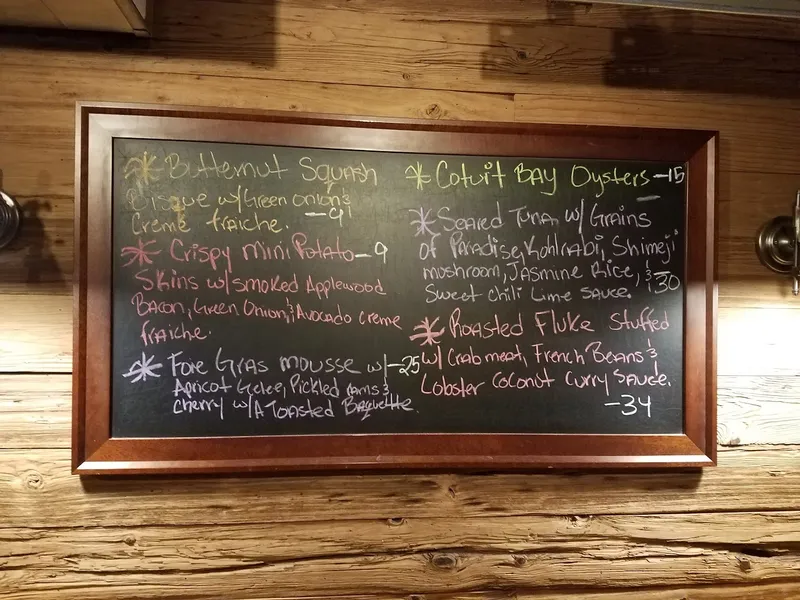 * Butternut Squash
Bisque w/Green onion &
Creme fraiche. -9
* Crispy Mini Potato -9
Skins w/smoked Applewood
Bacon, Green Onion, & Avocado creme
fraiche.
* Foie Gras mousse w/ -25
Apricot Gelee, Pickled &
cherry w/A Toasted Baguette.
* Cotuit BAY Oysters -15
* Seared Tuna w/ Grains
of Paradise, Kohlrabi, Shimeji
mushroom, Jasmine Rice, &
Sweet Chili Lime Sauce. -30
* Roasted Fluke Stuffed
w/ Crab meat, French Beans &
Lobster Coconut Curry Sauce.
-34